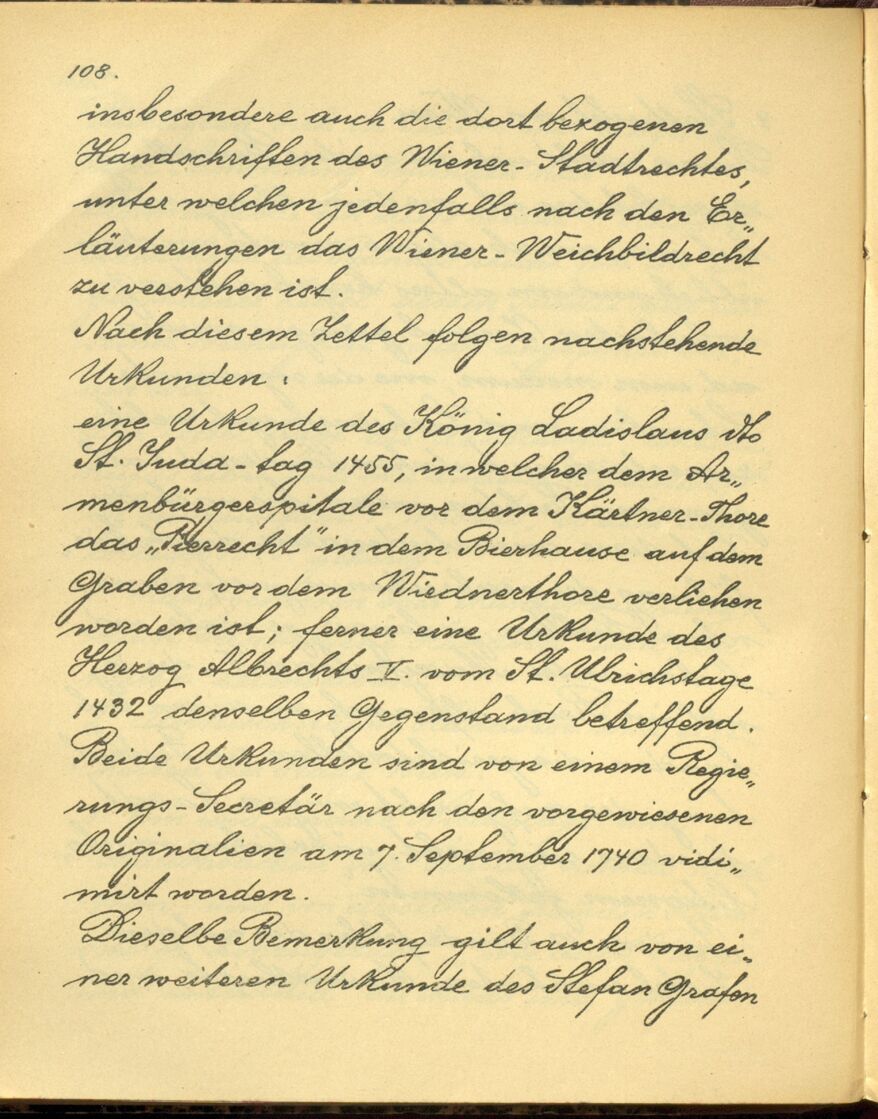 108.
insbesondere auch die dort bezogenen
Handschriften des Wiener-Stadtrechtes,
unter welchen jedenfalls nach den Er„
läuterungen das Wiener-Weichbildrecht
zu verstehen ist.
Nach diesem Zettel folgen nachstehende
Urkunden:
eine Urkunde des König Ladislaus dto
St. Juda-tag 1455, in welcher dem Ar„
menbürgerspitale vor dem Kärtner-Thore
das „Pierrecht" in dem Bierhause auf dem
Graben vor dem Wiednerthore verliehen
worden ist; ferner eine Urkunde des
Herzog Albrechts V. vom St. Ulrichstage
1432 denselben Gegenstand betreffend.
Beide Urkunden sind von einem Regie„
rungs-Secretär nach den vorgewiesenen
Originalien am 7. September 1740 vidi„
mirt worden.
Dieselbe Bemerkung gilt auch von ei„
ner weiteren Urkunde des Stefan Grafen